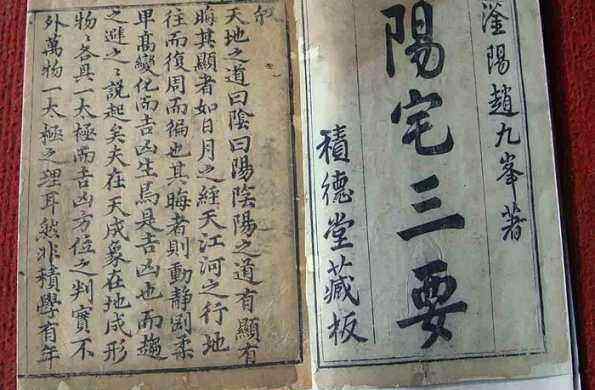 滏陽趙九峯著
陽宅三要
積德堂藏板
敘
天地之道曰陰曰陽陰陽之道有顯有
晦其顯者如日月之經天江河之行地
往而復周而徧也其晦者則動靜剛柔
卑高變化而吉凶生焉是吉凶也而趨
之避之之說起矣夫在天成象在地成形
物物各具一太極而吉凶方位之判實不
外萬物一太極之理耳然非積學有年